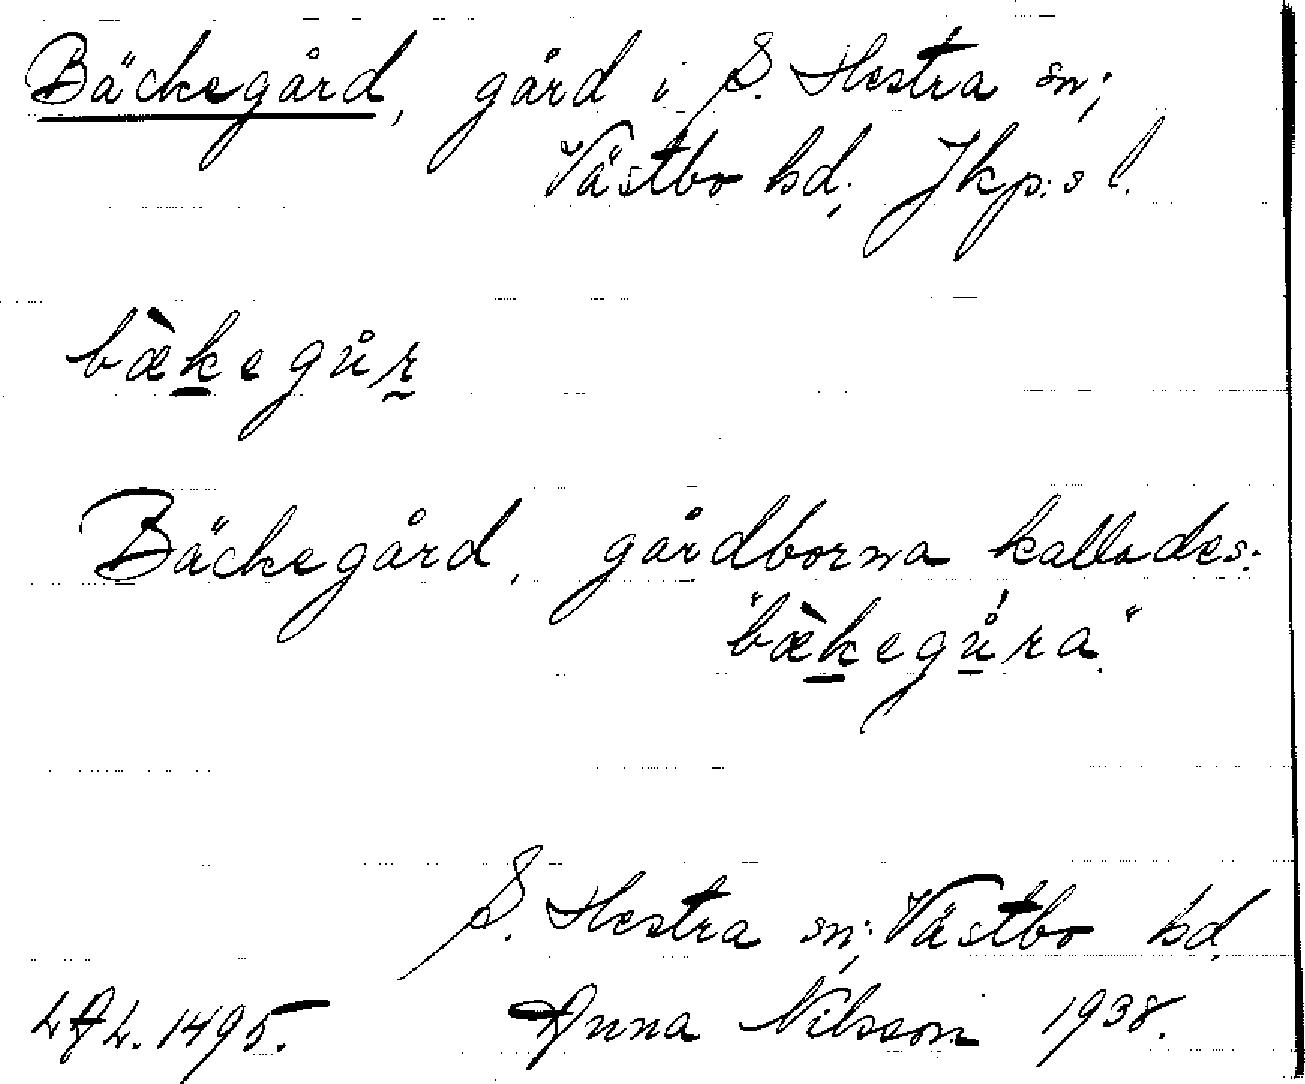 Bäckegård, gård i S. Hestra sn;
Västbo hd; Jkp:s l.
bæ̀kegůr
Bäckegård, gårdborna kallades:
"bæ̀kegů́ra".
S. Hestra sn; Västbo hd.
LAL. 1495. Anna Nilsson 1938.